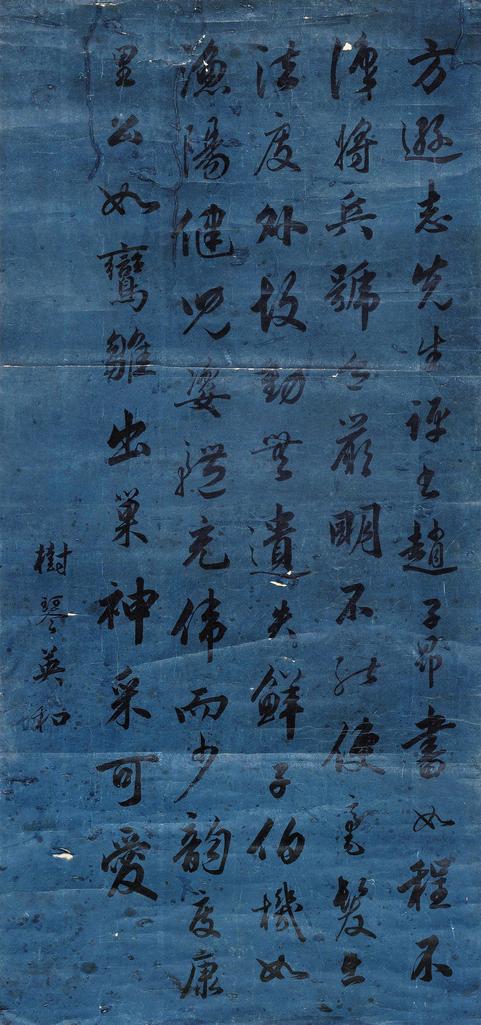 方遜志先生評趙子昂書如程不
識將兵號令嚴明不能使毫髮出
法度外故動無遺失鮮于伯機如
漁陽健兒姿體充偉而少韻度康
里公如鸞雛出巢神采可愛
樹琴英和